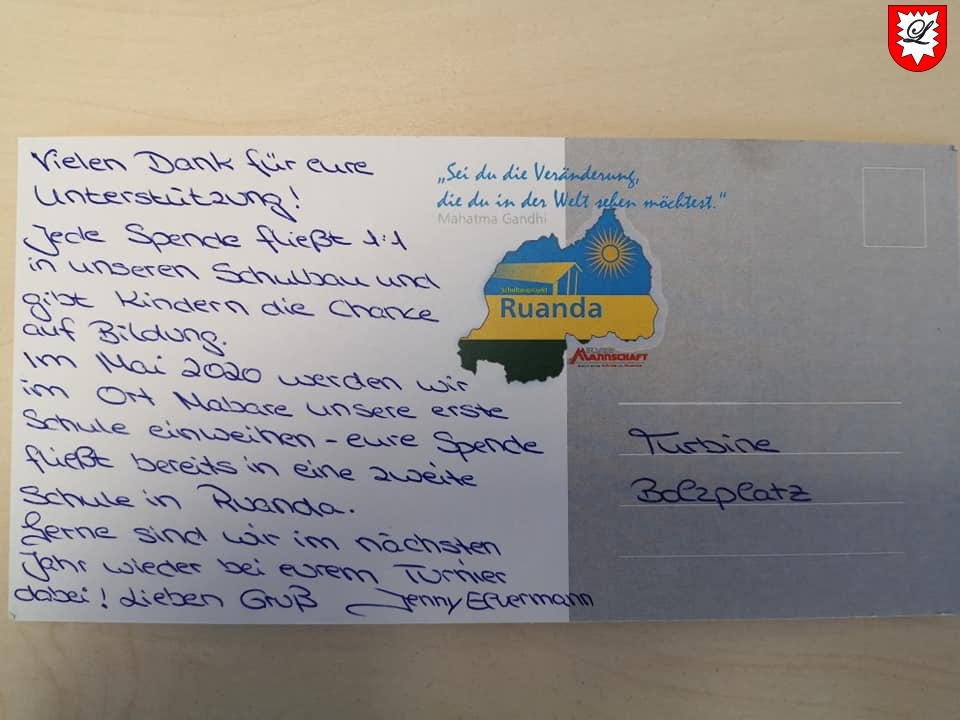 Vielen Dank für eure
Unterstützung!
Jede Spende fließt 1:1
in unseren Schulbau und
gibt Kindern die Chance
auf Bildung.
Im Mai 2020 werden wir
im Ort Mabare unsere erste
Schule einweihen - eure Spende
fließt bereits in eine zweite
Schule in Ruanda.
Gerne sind wir im nächsten
Jahr wieder bei eurem Turnier
dabei! Lieben Gruß Jenny
„Sei du die Veränderung,
die du in der Welt sehen möchtest.“
Mahatma Gandhi
Schulbauprojekt
Ruanda
MANNSCHAFT
Turbine
Bolzplatz
L